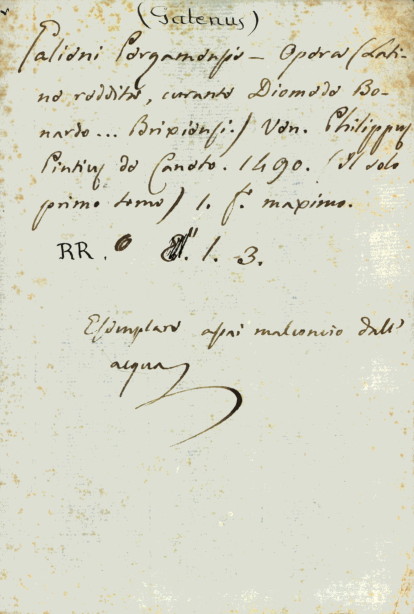 (Galenus)
Galieni Pergamensis - Opera (Lati-
ne reddita, curante Diomede Bo-
nardo... Brixiensi.) Ven. Philippus
Pintius de Caneto. 1490. (Il solo
primo tomo) 1. f.° maximo.
RR. 1. 3.
Esemplare assai malconcio dall'
acqua